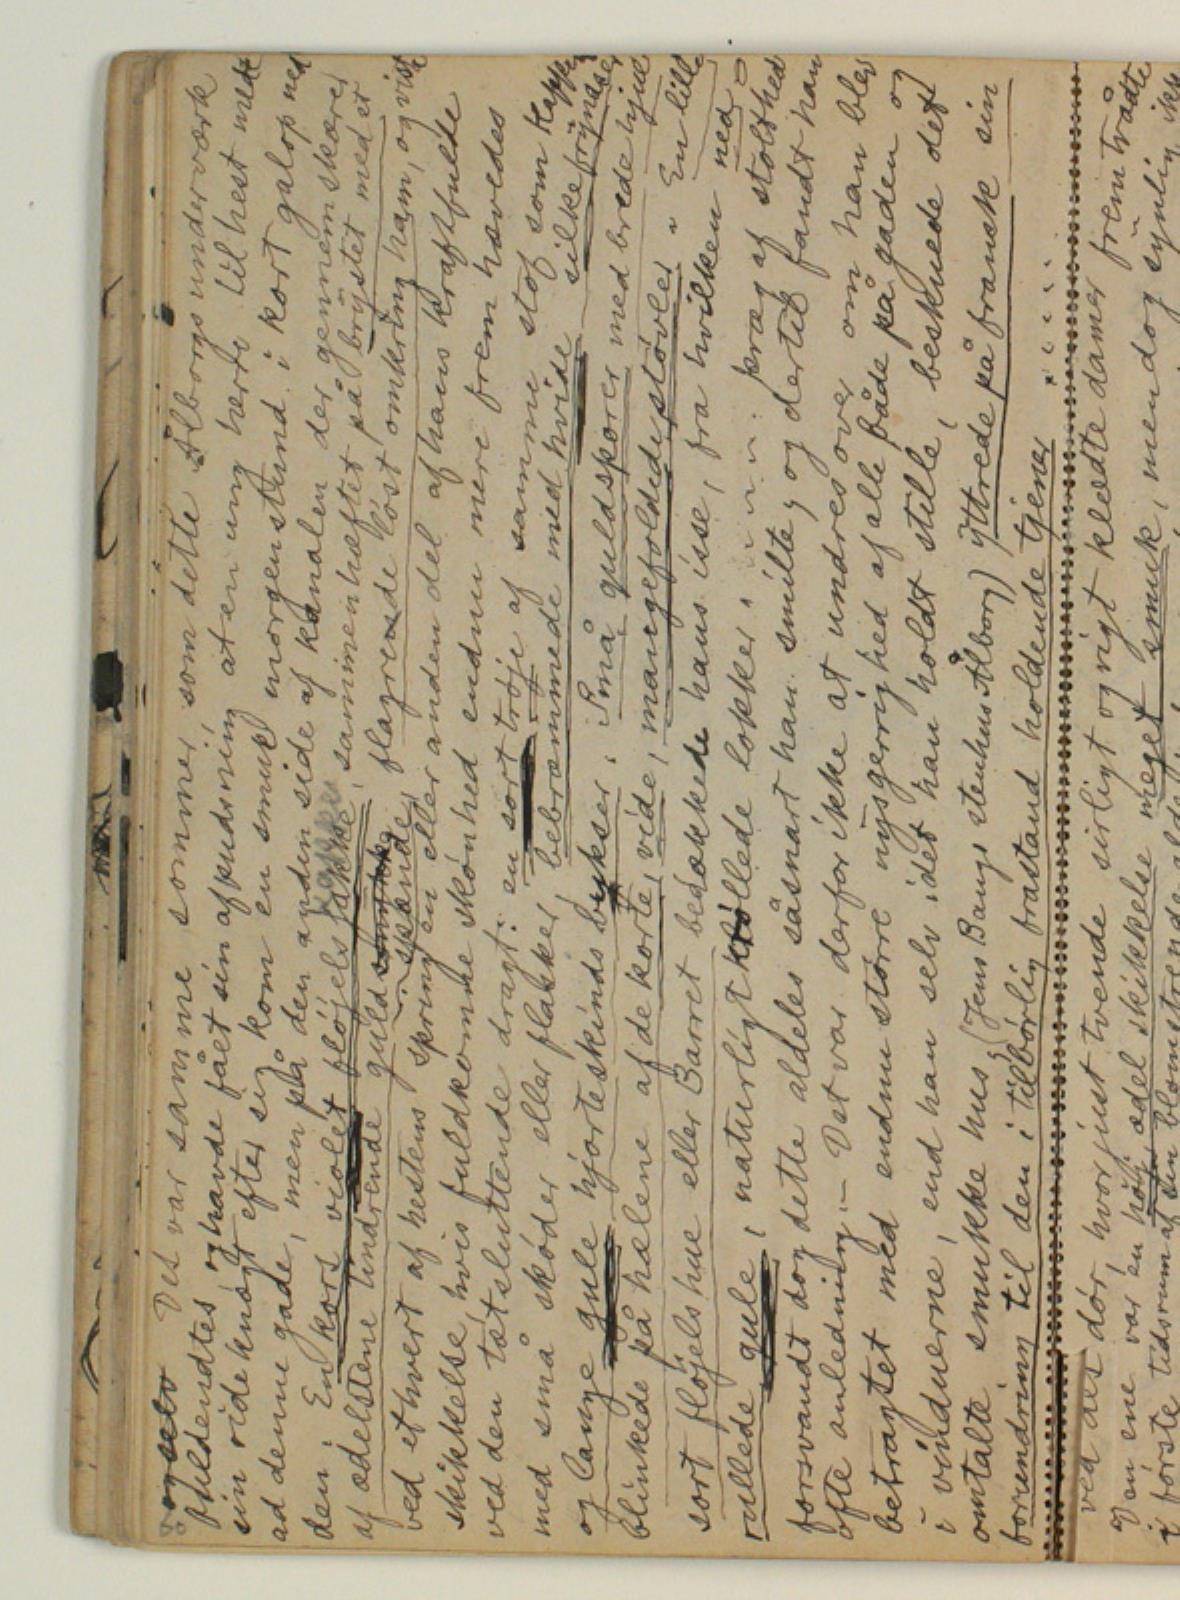 Det var samme sommer, som dette Ålborgs underværk
fuldendtes, og havde fået sin afpudsning, at en ung herre til hest med
sin ride knægt efter sig kom en smuk morgenstund i kort galop ned
ad denne gade, men på den anden side af kanalen der gennemskærer
den. En kors violet fløjels kappe, sammenhæftet på brystet med et
af ædelstene tindrende guld spænde, flagrende löst omkring ham, og viste
ved ethvert af hestens spring en eller anden del af hans kraftfulde
skikkelse, hvis fuldkomne skönhed endnu mere frem hævedes
ved den tætsluttende dragt: en sort tröje af samme stof som kappen
med små sköder eller flakker, bebræmmede med hvide silke frynser
og lange gule hjorteskinds bukser. Små guldsporer med brede hjul
blinkede på hælene af de korte, vide, mangefoldede støvler. En lille
sort flöjels hue eller Barret bedækkede hans isse, fra hvilken ned
rullede gule, naturligt kröllede lokker. præg af stolthed
forsvandt dog dette aldeles såsnart han smilte, og dertil fandt han
ofte anledning. – Det var derfor ikke at undres over om han blev
betragtet med endnu större nysgerrighed af alle både på gaden og
i vinduerne, end han selv, idet han holdt stille, beskuede det
omtalte smukke hus, (Jens Bangs stenhus Ålborg) yttrede på fransk sin
forundring til den i tilbörlig frastand holdende tjener
ved det dör, hvor just tvende sirligt og rigt klædte damer frem trådte
Den ene var en höj ædel skikkelse meget smuk, men dog synlig
i förste tidsrum af en blomstrende